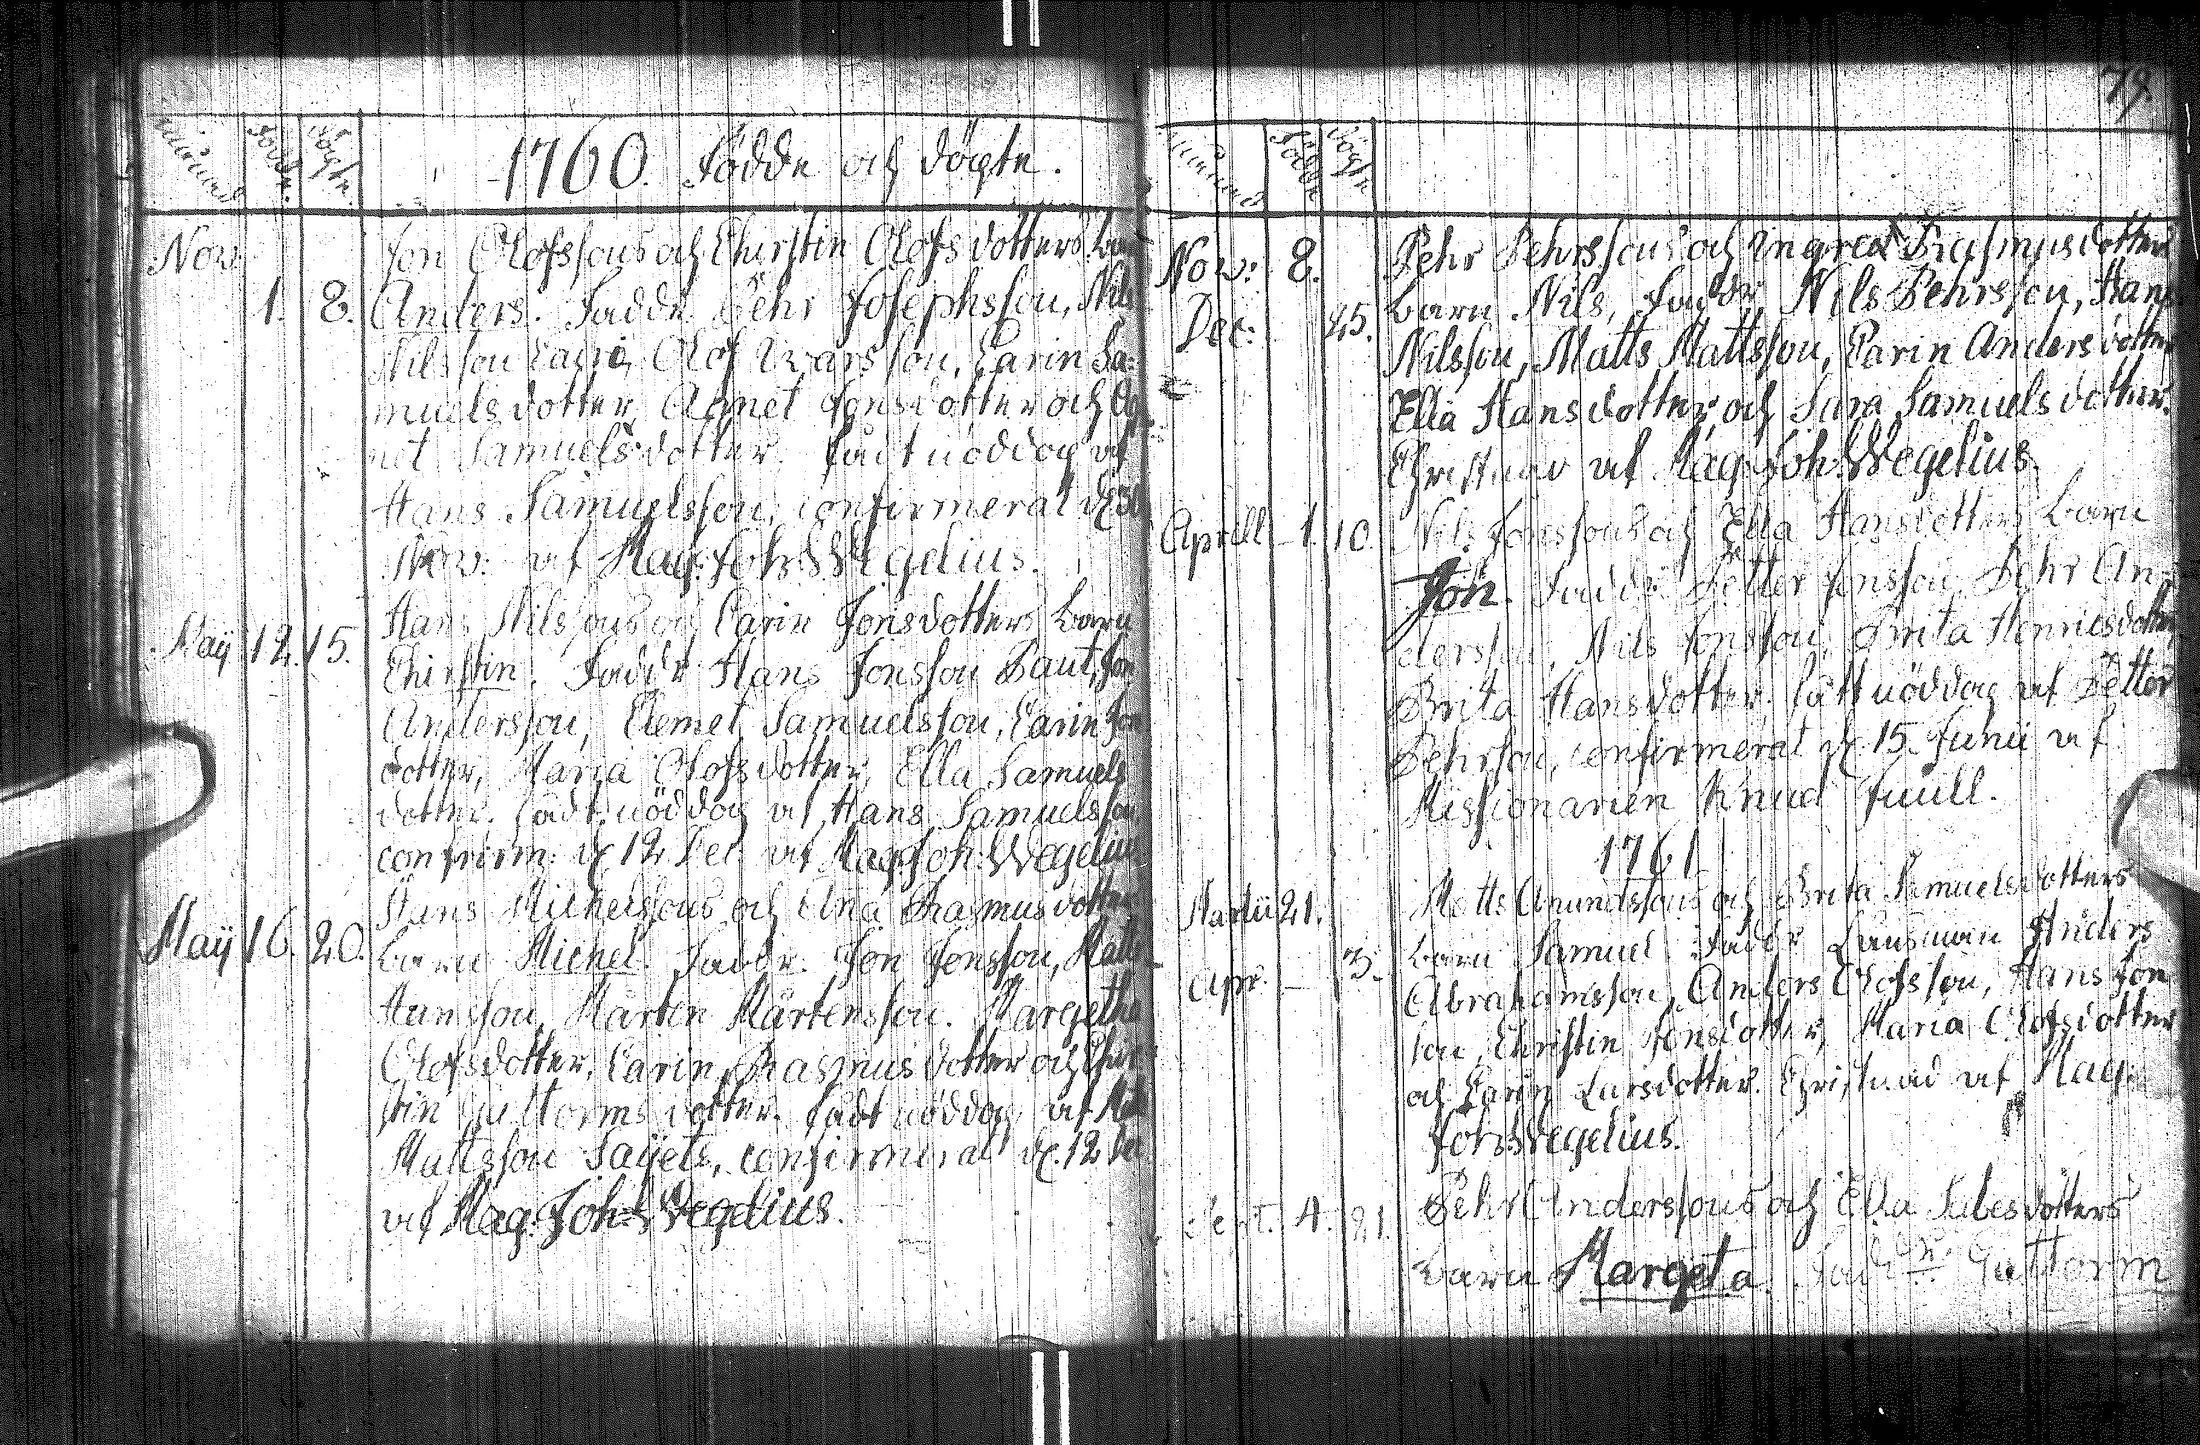 månad Födde. Dögte.
1760. Födde och Dögte.
Nov. Jon Olofssons och Chirstin Olofsdotters barn
1. 8. Anders. Faddr. Pehr Josephsson, Nils
Nilsson Olof Ivarsson, Carin Sa-
muelsdotter, Agnet Jonsdotter och Ag-
net Samuelsdotter. Fådt nöddop af
Hans Samuelsson, confirmerat d.
Nov: af Mag: Joh: Wegelius.
Hans Nilssons och Carin Jonsdotters barn
Maij 12. 15. Chirstin. Faddr Hans Jonsson Jon
Andersson, Clemet Samuelsson, Carin Jon
dotter, Maria Olofsdotter, Ella Samuels
dotter. Fådt nöddop af Hans Samuelsson
confirm: d 12 Dec af Mag: Joh: Wegelius
Hans Michelssons och Ana Rasmusdotters
Maij 16. 20. barn Michel. Faddr. Jon Jonsson, Matts
Hansson, Mårten Mårtensson. Margetha
Olofsdotter, Carin Rasmusdotter och Chir
stin Guttormsdotter. Fådt nöddop af
Mattsson Saijets, confirmerat d. 12 Dec
af Mag: Joh: Wegelius.
79.
månad Födde Dögte
Nov: 8. Pehr Pehrssons och Ingred Rasmusdotters
Dec: 25. barn Nils, Faddr Nils Pehrsson, Hans
Nilsson, Matts Mattsson, Carin Andersdotter
Ella Hansdotter, och Sara Samuelsdotter.
Christnad af Mag: Joh: Wegelius.
Aprill 1. 10. Nils Jonssons och Ella Hansdotters barn
Jon. Faddr Petter Jonsson, Pehr An-
dersson, Nils Jonsson, Brita Henricsdotter
Brita Hansdotter. Fått nöddop af Petter
Pehrson, confirmerat d. 15. Junii af
Missionarien Knud Juull.
1761
Martii 21. Matts Amundssons och Brita Samuelsdotters
barn Samuel. Faddr Länsman Anders
Apr. 3. Abrahamsson, Anders Olofsson, Hans Jon
son, Christin Jonsdotter, Maria Olofsdotter
och Carin Larsdotter. Christnad af Mag:
Joh: Wegelius.
Sept. 4. 21. Pehr Anderssons och Ella dotters
barn Margeta. Faddr. Guttorm